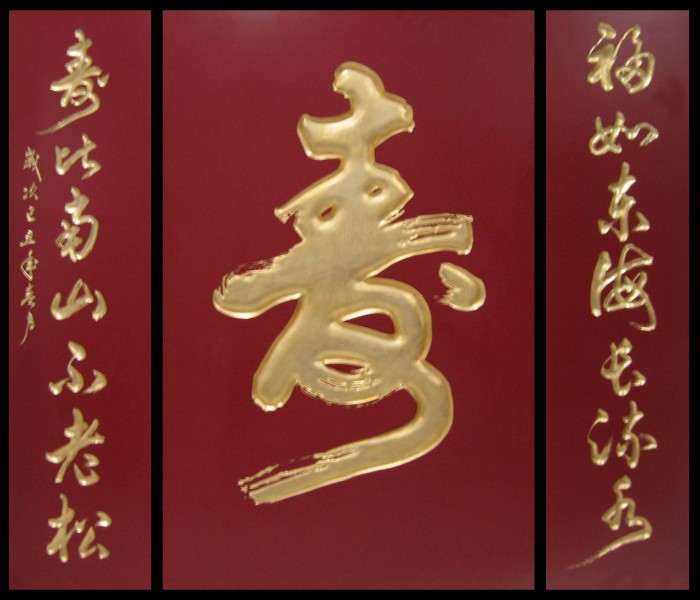 福如东海长流水
寿
寿比南山不老松
岁次己丑年春月